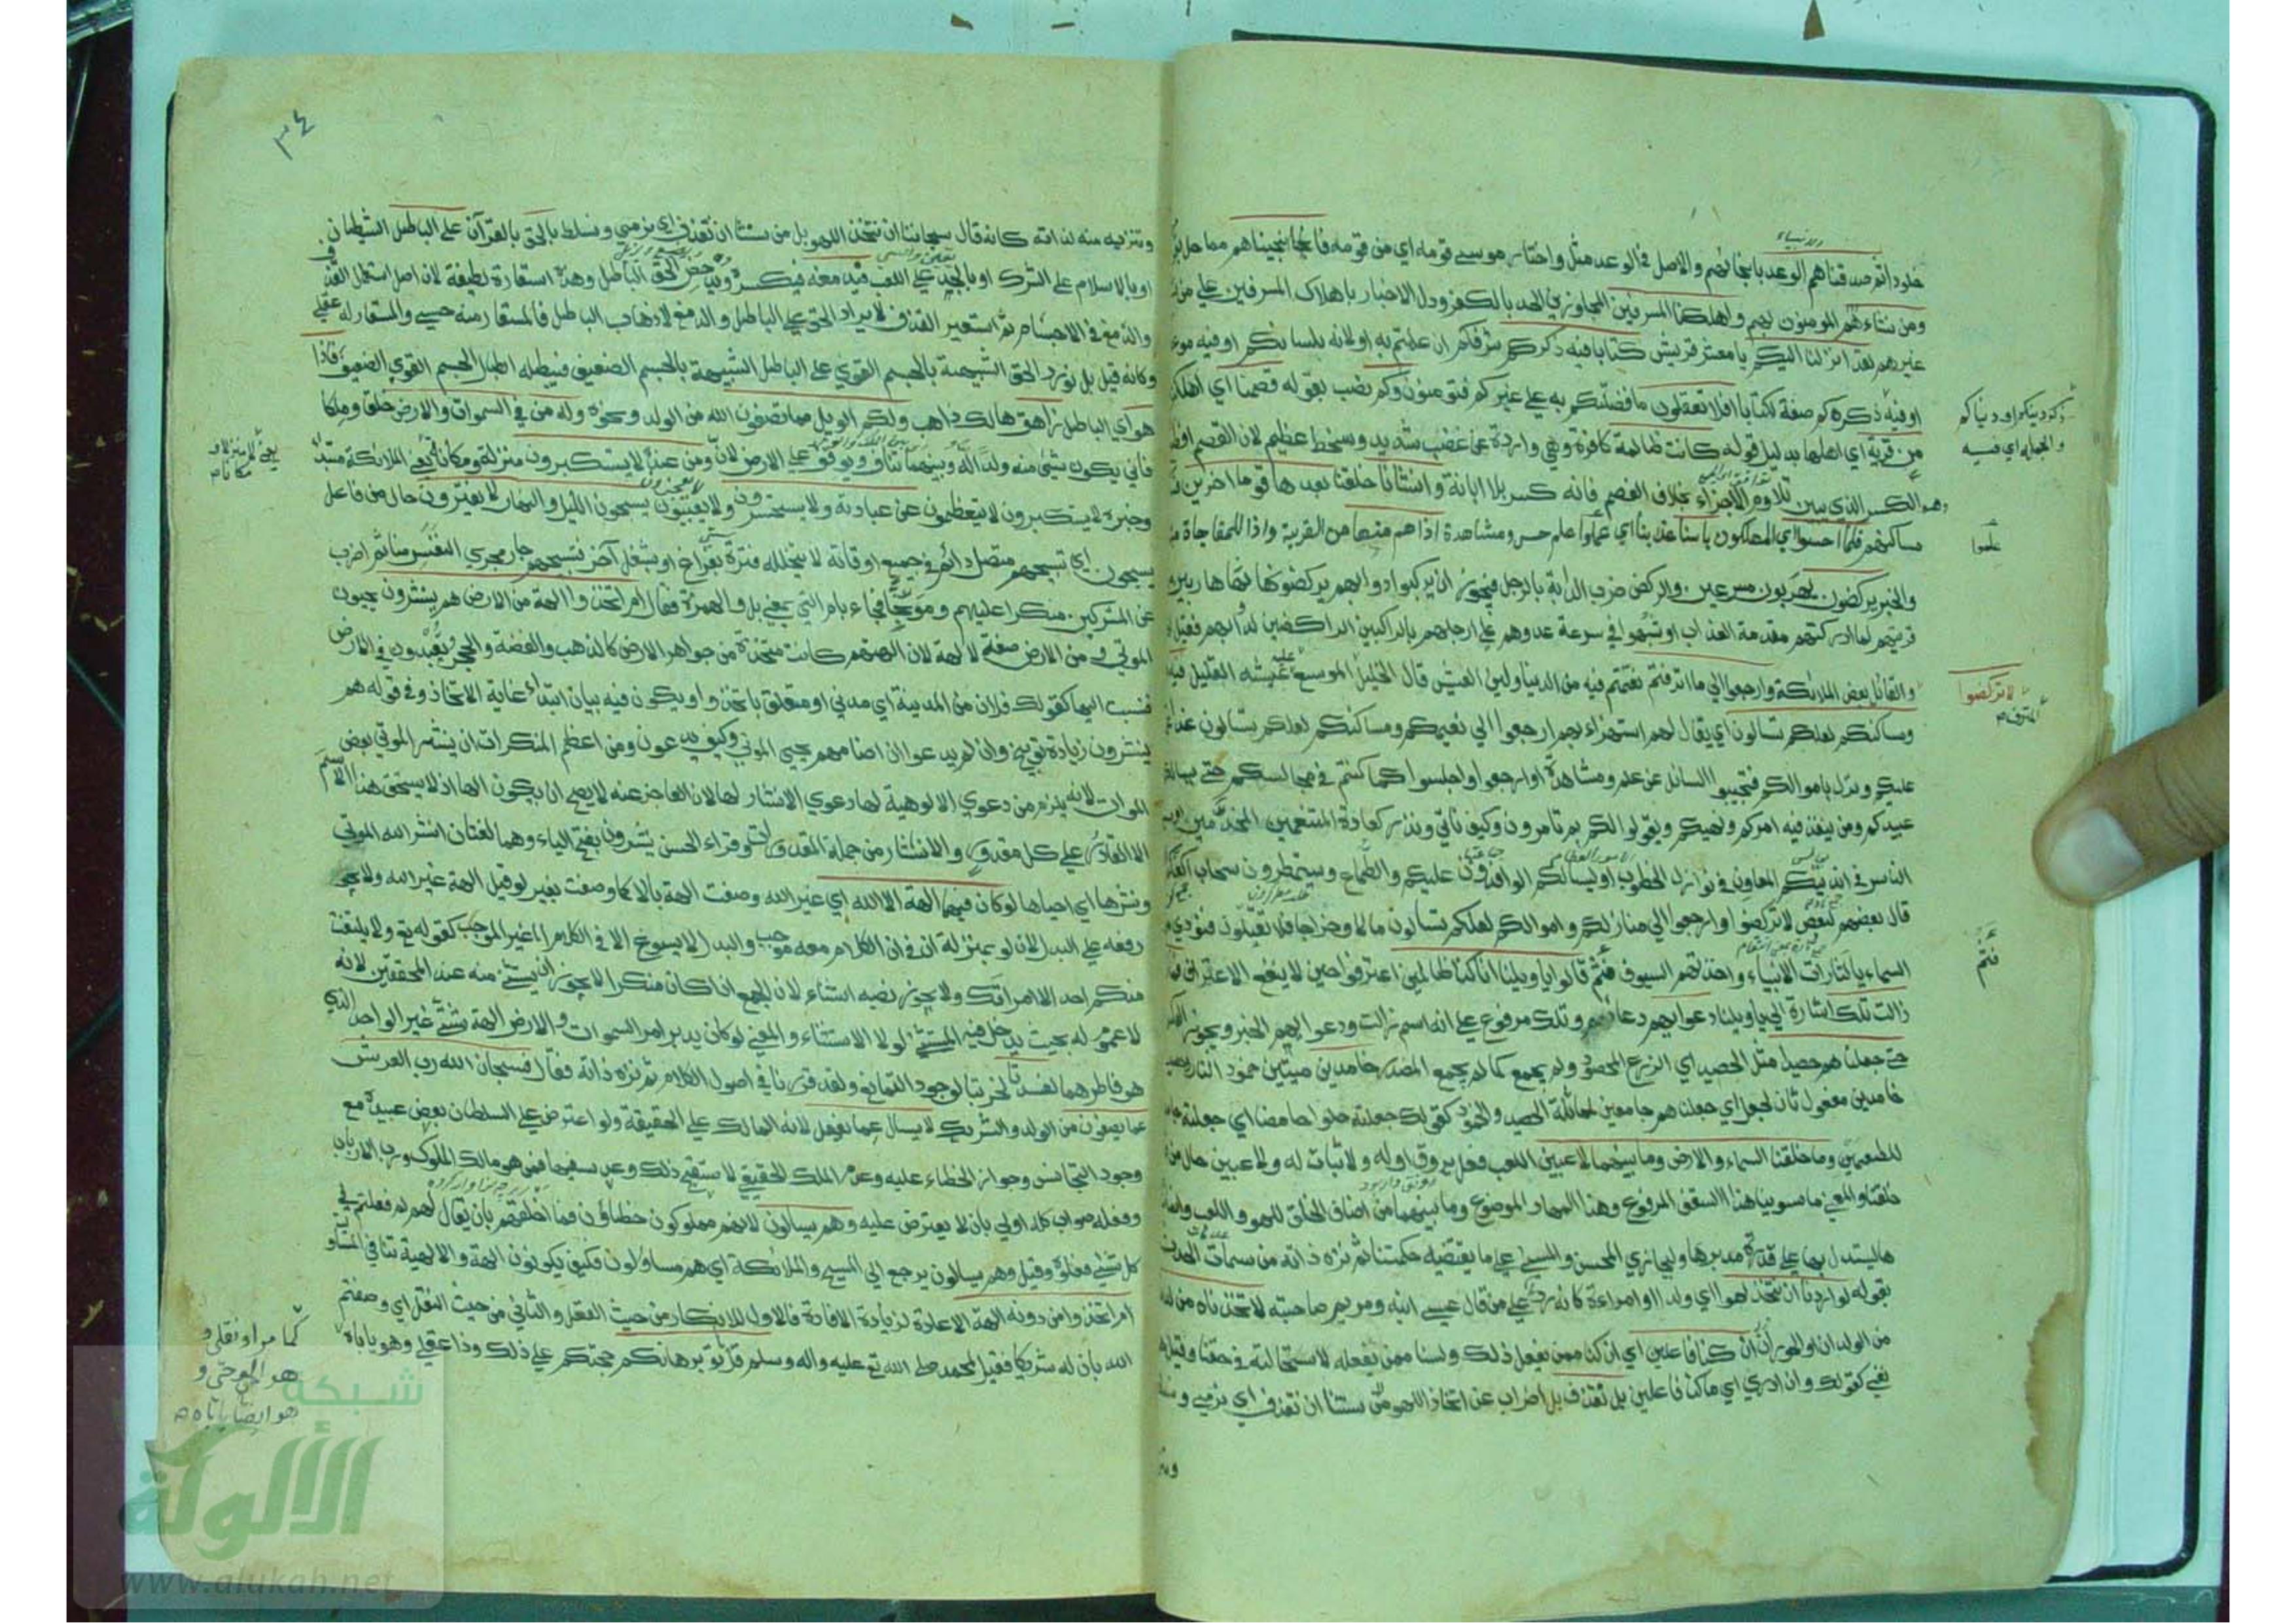 خلود ثم صدقناهم الوعد بانجائهم والاصل في الوعد مثل واختار موسى قومه اي من قومه فانجيناهم مما حل
ومن نشاء هم المومنون واهلكنا المسرفين المجاوزين الحد بالكفر ودل الاخبار باهلاك المسرفين على من
غيرهم لقد انزلنا اليكم يا معشر قريش كتابا فيه ذكركم شرفكم ان علمتم به او لانه بلسانكم او فيه
او فيه ذكركم صفة لكتابا افلا تعقلون ما فضلتكم به على غيركم فتومنون وكم نصب بقوله قصمنا اي اهلكنا
من قرية اي اهلها بدليل قوله كانت ظالمة كافرة وهي واردة عن غضب شديد وسخط عظيم لان القصم
هو الكسر الذي يبين تلاوم الاجزاء بخلاف الفصم فانه كسر بلا ابانة وانشانا خلقنا بعدها قوما اخرين
مساكنهم فلما احسوا اي المهلكون باسنا عذابنا اي علموا علم حس ومشاهدة اذا هم منها من القرية واذا للمفاجاة
والخبر يركضون يهربون مسرعين والركض ضرب الدابة بالرجل فيجوز ان يركبوا دوابهم يركضونها
قريتهم لما ادركتهم مقدمة العذاب او شبهوا في سرعة عدوهم على ارجلهم بالراكبين الراكضين لدوابهم فقيل
والقائل بعض الملائكة وارجعوا الى ما اترفتم نعمتم فيه من الدنيا ولين العيش قال الخليل الموسع عليه عيشه القليل فيه
ومساكنكم لعلكم تسالون اي يقال لهم استهزاء بهم ارجعوا الى نعيمكم ومساكنكم لعلكم تسالون غدا
عليكم ونزل باموالكم فتجيبوا السائل عن علم ومشاهدة او ارجعوا واجلسوا كما كنتم في مجالسكم حتى
عبيدكم ومن ينفذ فيه امركم ونهيكم ويقولوا لكم بم تامرون وكيف ناتي ونذر كعادة المتنعمين المخدمين
الناس في انديتكم المعاون في نوازل الخطوب او يسالكم الوافدون عليكم والطماع ويستمطرون سحاب
قال بعضهم لبعض لا تركضوا وارجعوا الى منازلكم واموالكم لعلكم تسالون مالا وخراجا فلا تقتلون فنودي
السماء يا لثارات الانبياء واخذتهم السيوف فثم قالوا يا ويلنا انا كنا ظالمين اعترفوا حين لا ينفع الاعتراف
زالت تلك اشارة الى يا ويلنا دعواهم دعاءهم وتلك مرفوع على انه اسم زالت ودعواهم الخبر ويجوز
حتى جعلناهم حصيدا مثل الحصيد اي الزرع المحصود ولم يجمع كما لم يجمع المصدر خامدين ميتين خمود النار
خامدين مفعول ثان لجعل اي جعلناهم جامعين لمماثلة الحصيد والخمود كقولك جعلته حلوا حامضا اي جعلته
للطعمين وما خلقنا السماء والارض وما بينهما لاعبين اللعب فعل يروق اوله ولا ثبات له ولاعبين حال من
خلقنا والمعنى ما سوينا هذا السقف المرفوع وهذا المهاد الموضوع وما بينهما من اصناف الخلق للهو واللعب وانما
ها ليستدل بها على قدرة مدبرها وليجازي المحسن والمسيء على ما يقتضيه حكمتنا ثم نزه ذاته من سمات الحدث
بقوله لو اردنا ان نتخذ لهوا اي ولدا او امراة كانه رد على من قال عيسى ابنه ومريم صاحبته لاتخذناه من لدنا
من الولدان او الحور ان كنا فاعلين اي ان كنا ممن يفعل ذلك ولسنا ممن يفعله لاستحالته في حقنا وقيل
نفي كقولك وان ادري اي ما كنا فاعلين بل نقذف بل اضراب عن اتخاذ اللهو من سنتنا ان نقذف اي نرمي
علموا
لا تركضوا
فثم
٣٤
وتنزيه منه لذاته كانه قال سبحاننا ان نتخذ اللهو بل من سنتنا ان نقذف اي نرمي ونسلط بالحق بالقرآن على الباطل الشيطان
او بالاسلام على الشرك او بالجد على اللعب فيدمغه فيكسره ويدحض الحق الباطل وهذه استعارة لطيفة لان اصل استعمال القذف
والدمغ في الاجسام ثم استعير القذف لايراد الحق على الباطل والدمغ لاذهاب الباطل فالمستعار منه حسي والمستعار له عقلي
وكانه قيل بل نورد الحق الشبيه بالجسم القوي على الباطل الشبيه بالجسم الضعيف فيبطله ابطال الجسم القوي الضعيف فاذا
هو اي الباطل زاهق هالك ذاهب ولكم الويل مما تصفون الله من الولد ونحوه وله من في السموات والارض خلقا وملكا
فانى يكون شيء منه ولدا له وبينهما تناف ويوقف على الارض لان ومن عنده لا يستكبرون منزلة ومكانة يعني الملائكة مبتدا
وخبره لا يستكبرون لا يتعظمون عن عبادته ولا يستحسرون ولا يعيون يسبحون الليل والنهار لا يفترون حال من فاعل
يسبحون اي تسبيحهم متصل دائم في جميع اوقاته لا يتخلله فترة بفراغ او بشغل آخر فتسبيحهم جار مجرى التنفس منا ثم اضرب
عن المشركين منكرا عليهم وموبخا فجاء بام التي بمعنى بل والهمزة فقال ام اتخذوا آلهة من الارض هم ينشرون يحيون
الموتى ومن الارض صفة لآلهة لان آلهتهم كانت متخذة من جواهر الارض كالذهب والفضة والحجر وتعبدون في الارض
فنسب اليها كقولك فلان من المدينة اي مدني او متعلق باتخذوا ويكون فيه بيان ابتداء غاية الاتخاذ وفي قوله هم
ينشرون زيادة توبيخ وان لم يدعوا ان اصنامهم يحيي الموتى وكيف يدعون ومن اعظم المنكرات ان ينشر الموتى بعض
الموات لانه يلزم من دعوى الالوهية لها دعوى الانشار لها لان العاجز عنه لا يصح ان يكون الها اذ لا يستحق هذا الاسم
الا القادر على كل مقدور والانشار من جملة المقدورات وقراء الحسن ينشرون بفتح الياء وهما لغتان انشر الله الموتى
ونشرها اي احياها لو كان فيهما آلهة الا الله اي غير الله وصفت آلهة بالا كما وصفت بغير لو قيل آلهة غير الله ولا يجوز
رفعه على البدل لان لو بمنزلة ان في ان الكلام معه موجب والبدل لا يسوغ الا في الكلام الغير الموجب كقوله تع ولا يلتفت
منكم احد الا امراتك ولا يجوز نصبه استثناء لان الجمع اذا كان منكرا لا يجوز ان يستثنى منه عند المحققين لانه
لا عموم له بحيث يدخل فيه المستثنى لولا الاستثناء والمعنى لو كان يدبر امر السموات والارض آلهة شتى غير الواحد الذي
هو فاطرهما لفسدتا لخربتا لوجود التمانع ولقد قررنا في اصول الكلام ثم نزه ذاته فقال فسبحان الله رب العرش
عما يصفون من الولد والشريك لا يسال عما يفعل لانه المالك على الحقيقة ولو اعترض على السلطان بعض عبيده مع
وجود التجانس وجواز الخطاء عليه وعدم الملك الحقيقي لاستقبح ذلك وعد سفها فمن هو مالك الملوك ورب الارباب
وفعله صواب كله اولى بان لا يعترض عليه وهم يسالون لانهم مملوكون خطاؤن فما اخلقهم بان يقال لهم لم فعلتم في
كل شيء فعلوه وقيل وهم يسالون يرجع الى المسيح والملائكة اي هم مساولون فكيف يكونون آلهة والالهية تنافي
ام اتخذوا من دونه آلهة الاعادة لزيادة الافادة فالاول للانكار من حيث العقل والثاني من حيث النقل اي وصفتم
الله بان له شريكا فقيل لمحمد صلى الله تع عليه واله وسلم قل هاتوا برهانكم حجتكم على ذلك وذا عقلي وهو ياباه
كما مر او نقلي و
هو الوحي و
هو ايضا ياباه
شبكة
الألوكة
www.alukah.net